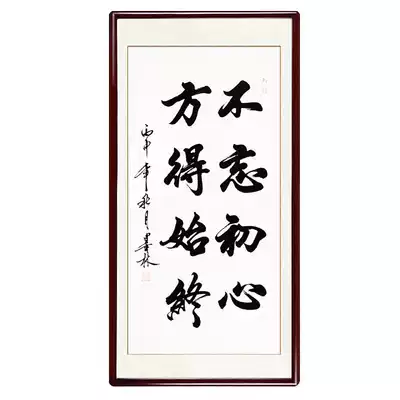 不忘初心
方得始終
丙申年秋月墨林